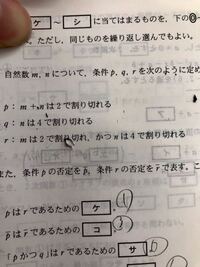 ケ ～ シ に当てはまるものを、下の⓪
ただし、同じものを繰り返し選んでもよい。
自然数 m, n について、条件 p, q, r を次のように定め
p : m + n は2で割り切れる
q : n は4で割り切れる
r : m は2で割り切れ、かつ n は4で割り切れる
た、条件 p の否定を p̄、条件 r の否定を r̄ で表す。こ
p は r であるための ケ 。
p̄ は r̄ であるための コ
「p かつ q」は r であるための サ